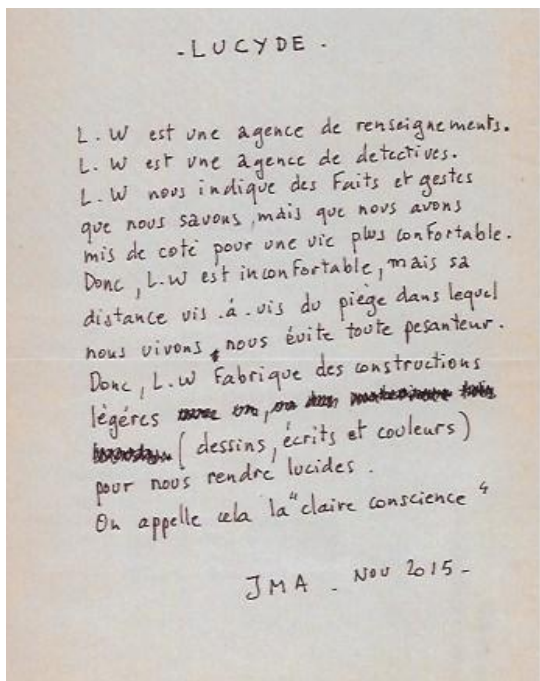 - LUCYDE -
L.W est une agence de renseignements.
L.W est une agence de detectives.
L.W nous indique des Faits et gestes
que nous savons, mais que nous avons
mis de coté pour une vie plus confortable.
Donc, L.W est inconfortable, mais sa
distance vis-à-vis du piège dans lequel
nous vivons, nous évite toute pesanteur.
Donc, L.W Fabrique des constructions
légéres
(dessins, écrits et couleurs)
pour nous rendre lucides.
On appelle cela la "claire conscience"
JMA - Nov 2015 -